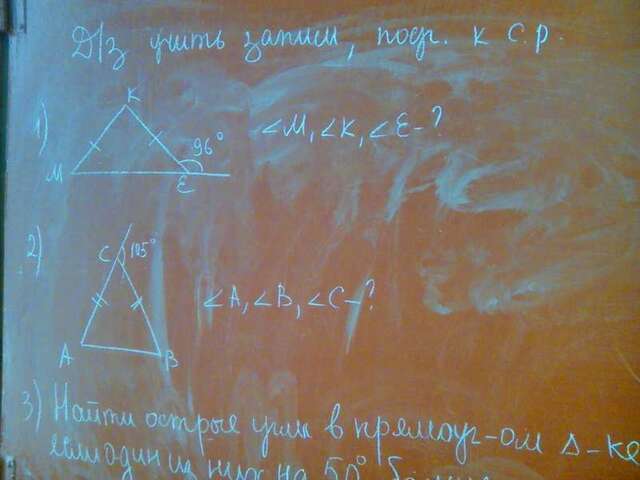 Д/з учить записи, подг. к С.р.
1)
K
96°
M
E
∠M, ∠K, ∠E-?
2)
C 105°
A
B
∠A, ∠B, ∠C-?
3) Найти острые углы в прямоуг-ом Δ-ке
если один из них на 50°